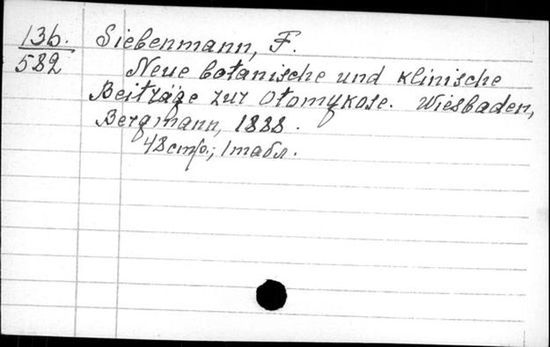 136. Siebenmann, F.
582
Neue botanische und klinische
Beiträge zur Otomykose. Wiesbaden,
Bergmann, 1888.
48 стр.; 1 табл.